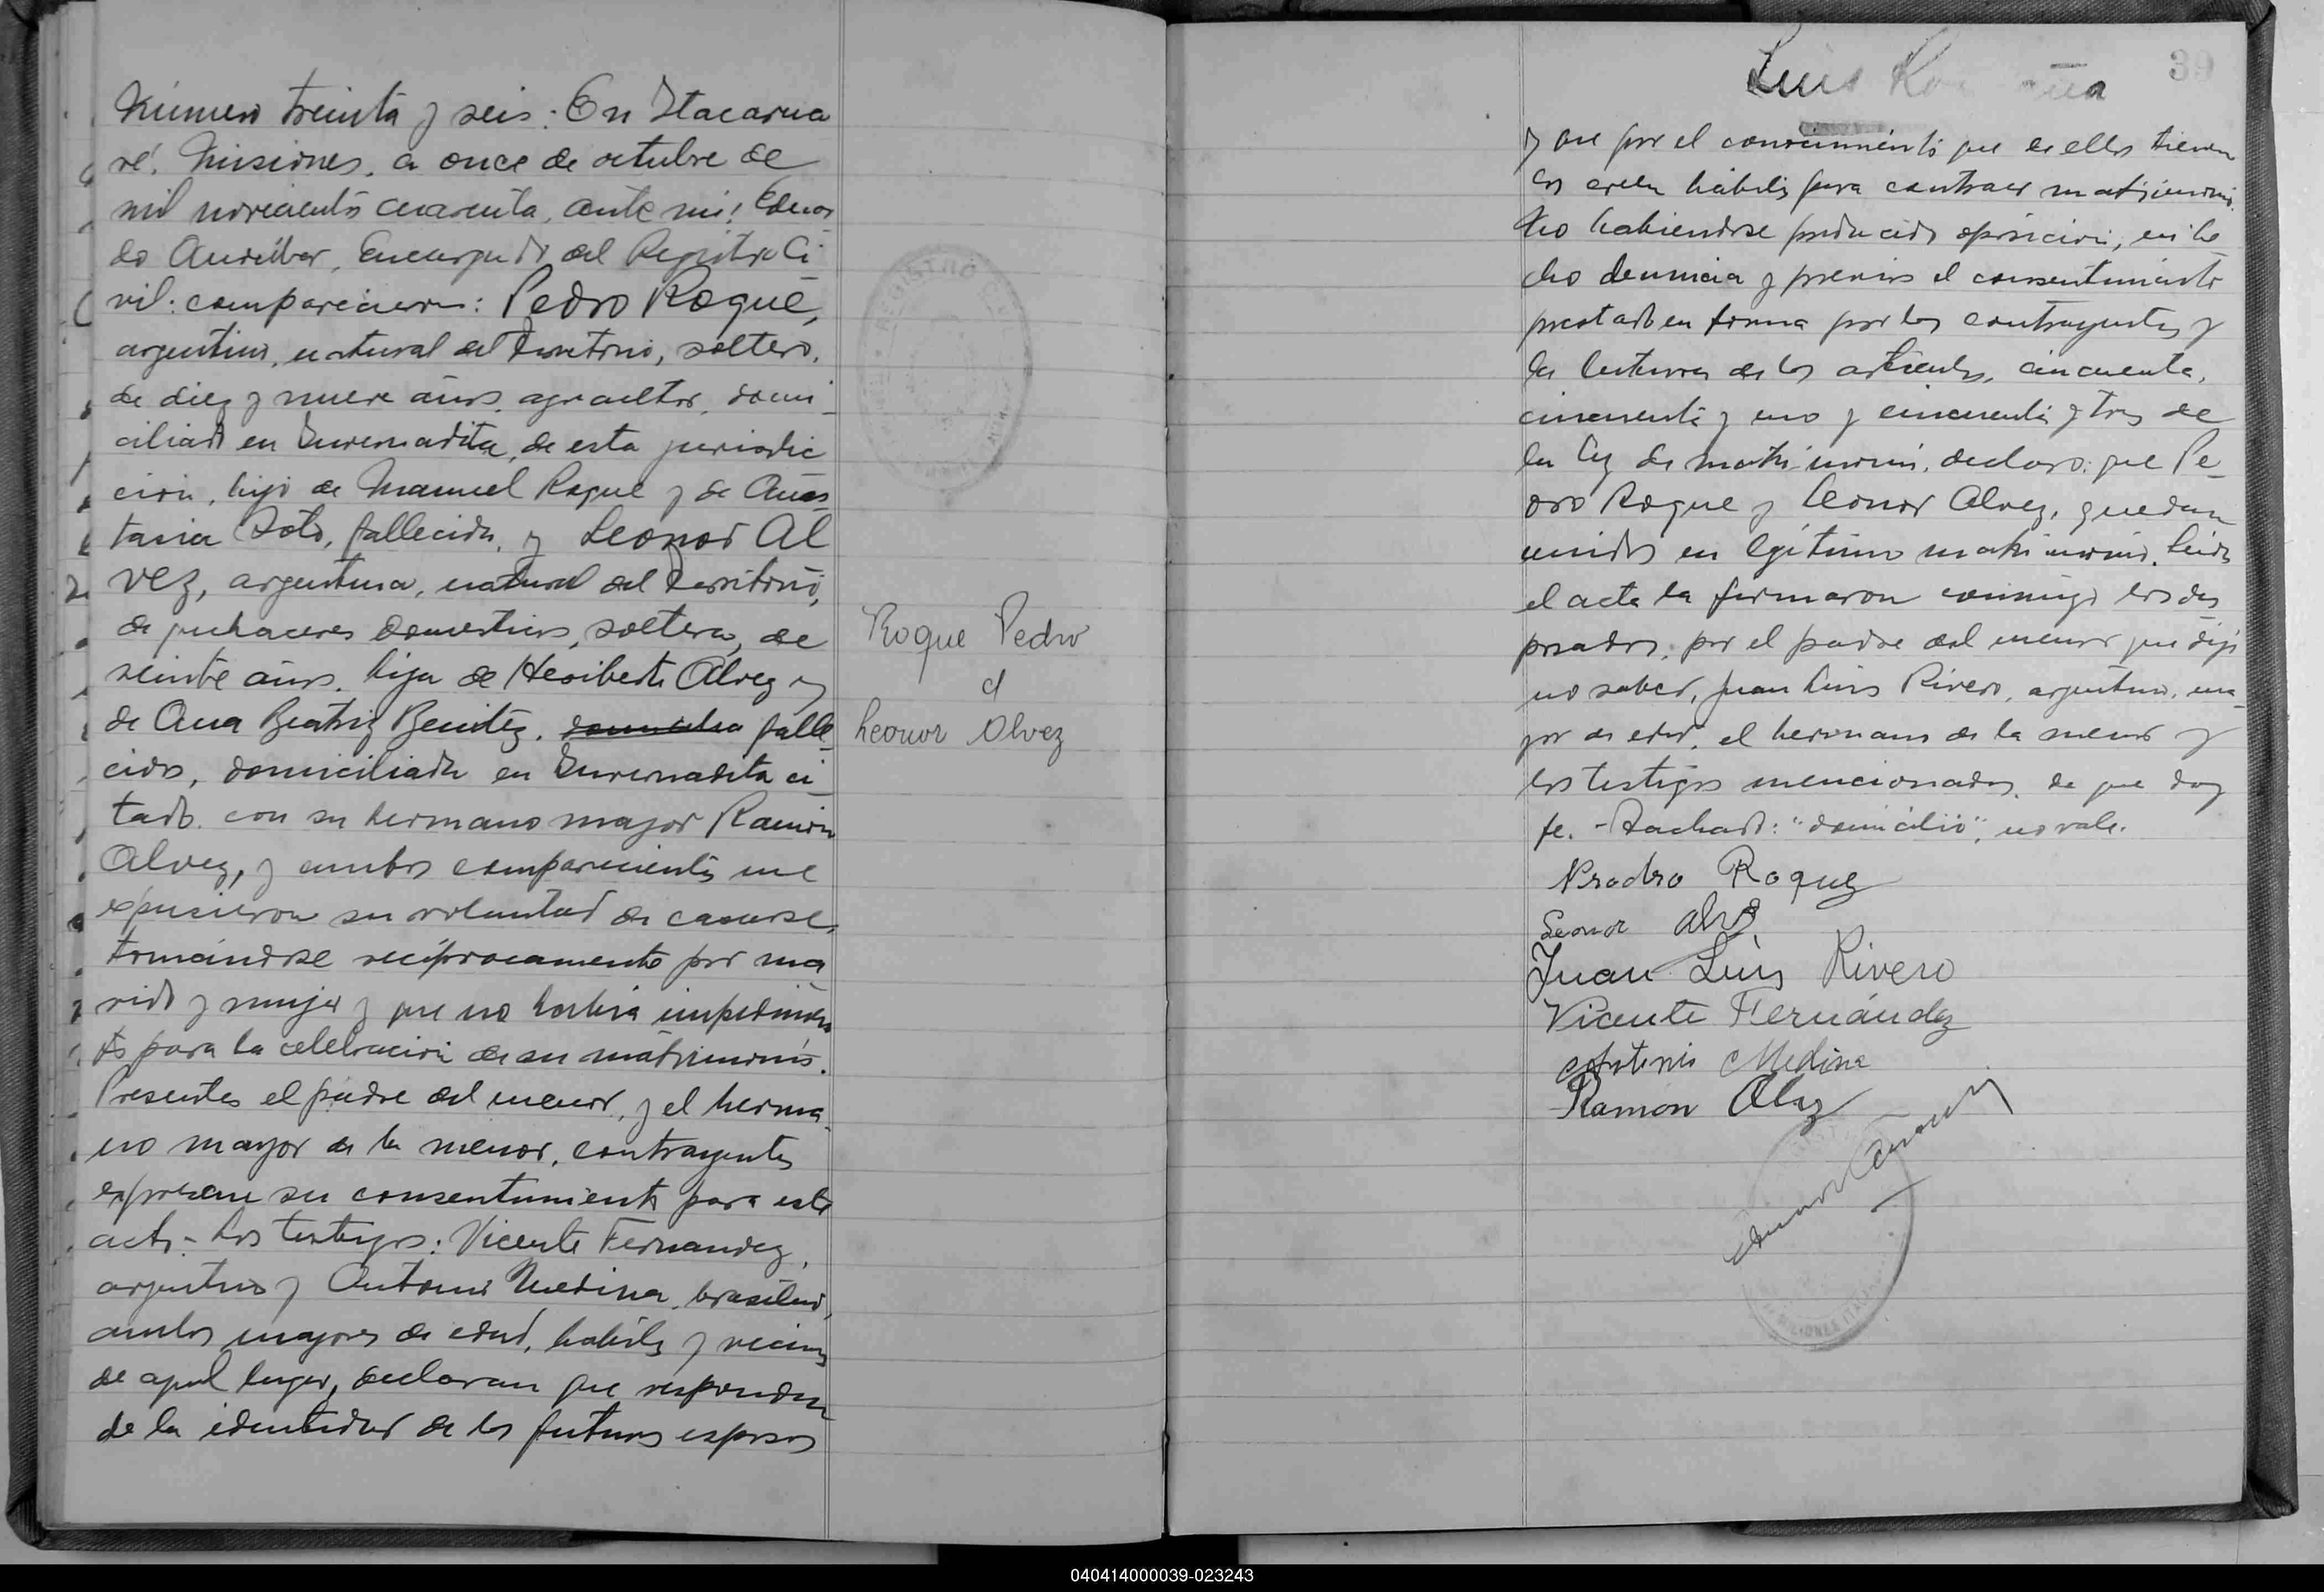 Número treinta y seis: En Itacarua
ré, Misiones, a once de octubre de
mil novecientos cuarenta, ante mi: Eduar
do , Encargado del Registro Ci
vil: comparecieron: Pedro Roque,
argentino, natural del Territorio, soltero,
de diez y nueve años, agricultor, domi_
ciliado en Invernadita, de esta jurisdic
ción, hijo de Manuel Roque y de Anas_
tasia Soto, fallecida, y Leonor Al
vez, argentina, natural del Territorio,
de quehaceres domesticos, soltera, de
veinte años, hija de Heriberto Alvez y
de Ana Beatriz Benitez, domicilio falle_
cidos, domiciliada en Invernadita ci_
tado, con su hermano mayor Ramón
Alvez, y ambos comparecientes me
expusieron su voluntad de casarse,
tomándose recíprocamente por ma
rido y mujer y que no habia impedimen
to para la celebración de su matrimonio.
Presentes el padre del menor, y el herma_
no mayor de la menor, contrayentes
expresan su consentimiento para este
acto.- Los testigos: Vicente Fernandez,
argentino y Antonio Medina, brasilero,
ambos mayores de edad, habiles y vecinos
de aquel lugar, declaran que responden
de la identidad de los futuros esposos
Roque Pedro
c/
Leonor Alvez
39
Luis
y que por el conocimiento que de ellos tienen
los creen hábiles para contraer matrimonio.
No habiendose producido oposición, ni he
cho denuncia y previos el consentimiento
prestado en forma por los contrayentes y
la lectura de los articulos, cincuenta,
cincuenta y uno y cincuenta y tres de
la ley de matrimonio, declaro: que Pe_
dro Roque y Leonor Alvez, quedan
unidos en legítimo matrimonio. Leida
el acta la firmaron conmigo los des
posados, por el padre del menor que dijo
no saber, Juan Luis Rivero, argentino, ma_
yor de edad, el hermano de la menor y
los testigos mencionados, de que doy
fe. -Tachado: "domicilio", no vale.
Roque
Leonor Alvz
Juan Luis Rivero
Vicente Fernández
Antonio Medina
Ramon Alvz
040414000039-023243